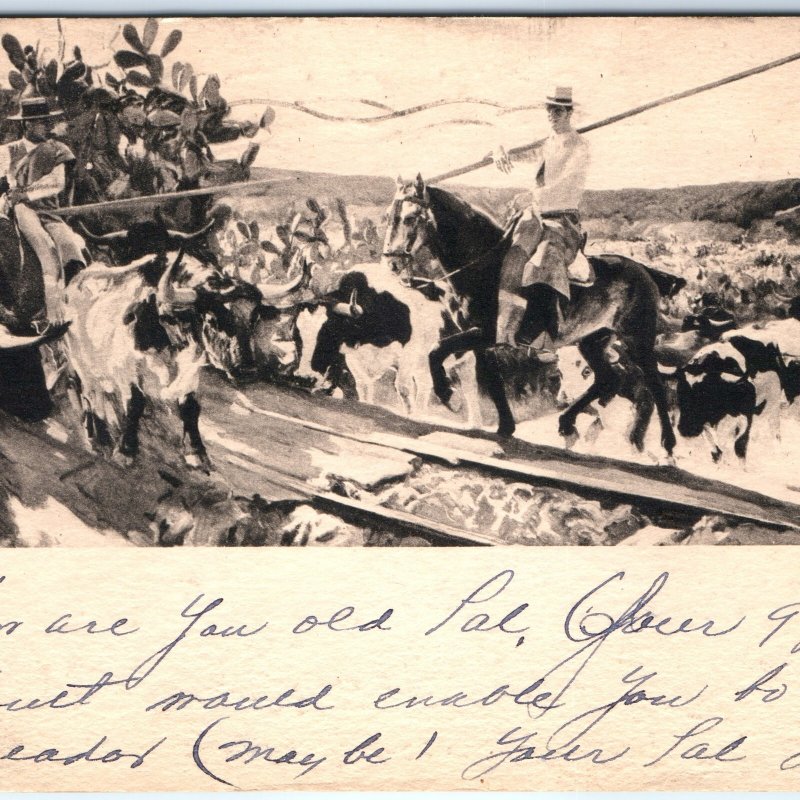 are You old Pal, (Your
would enable You to
eador (maybe) Your Pal